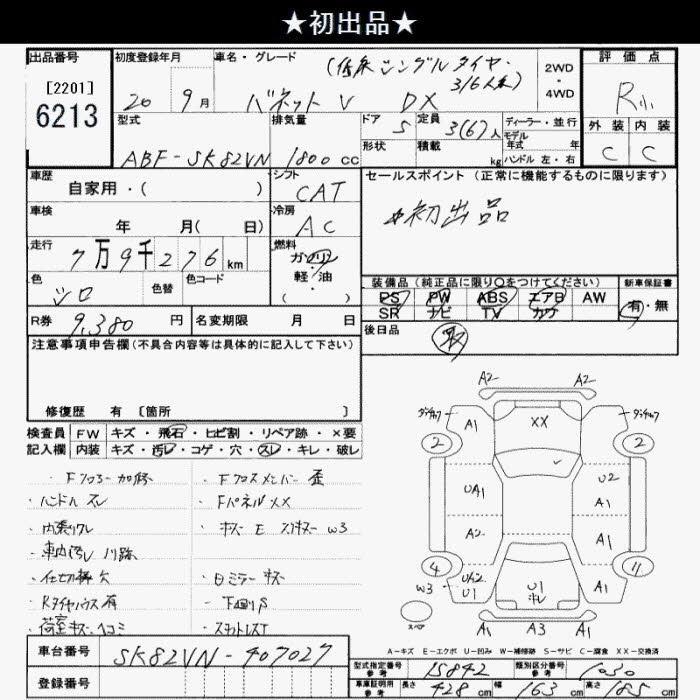 ★初出品★
出品番号
[2201]
6213
初度登録年月
20年9月
車名・グレード
(低床シングルタイヤ・
3/6人乗)
バネットV DX
2WD
・
4WD
評価点
R小
外装 内装
C C
型式
ABF-SK82VN
排気量
1800cc
ドア 5
定員 3(6)人
形状
積載 kg
ディーラー・並行
モデル
年式 年
ハンドル 左・右
車歴
自家用・( )
シフト
CAT
車検
年 月( 日)
冷房
AC
走行
7万9千276km
燃料
ガソリン
軽・油
( )
色
シロ
色替
色コード
R券 9,380円
名変期限 月 日
セールスポイント(正常に機能するものに限ります)
初出品
装備品(純正品に限り○をつけてください)
PS PW ABS エアB AW
SR ナビ TV カワ
新車保証書
有・無
後日品
取
注意事項申告欄(不具合内容等は具体的に記入して下さい)
修復歴 有 [箇所 ]
検査員 FW キズ・飛石・ヒビ割・リペア跡・×要
記入欄 内装 キズ・汚レ・コゲ・穴・スレ・キレ・破レ
・Fフロアー加修
・ハンドルスレ
・内張リワレ
・車内汚レ
・仕切棒欠
・Rタイヤハウス有
・荷室キズ・ヘコミ
・Fクロスメンバー歪
・FパネルXX
・キズE W3
・Bミラーキズ
・下回りS
A2 A2
A1 XX
2 2
UA1 U2
A1
A2 A1
4 4
W3 UA2
U1 U1
キレ A1
スペア
A1 A3 A1
A-キズ E-エクボ U-凹み W-補修跡 S-サビ C-腐食 XX-交換済
車台番号 SK82VN-407027
登録番号
型式指定番号
参考
15842
類別区分番号
参考
1030
車庫証明用
参考
長さ 428cm 幅 163cm 高さ 185cm